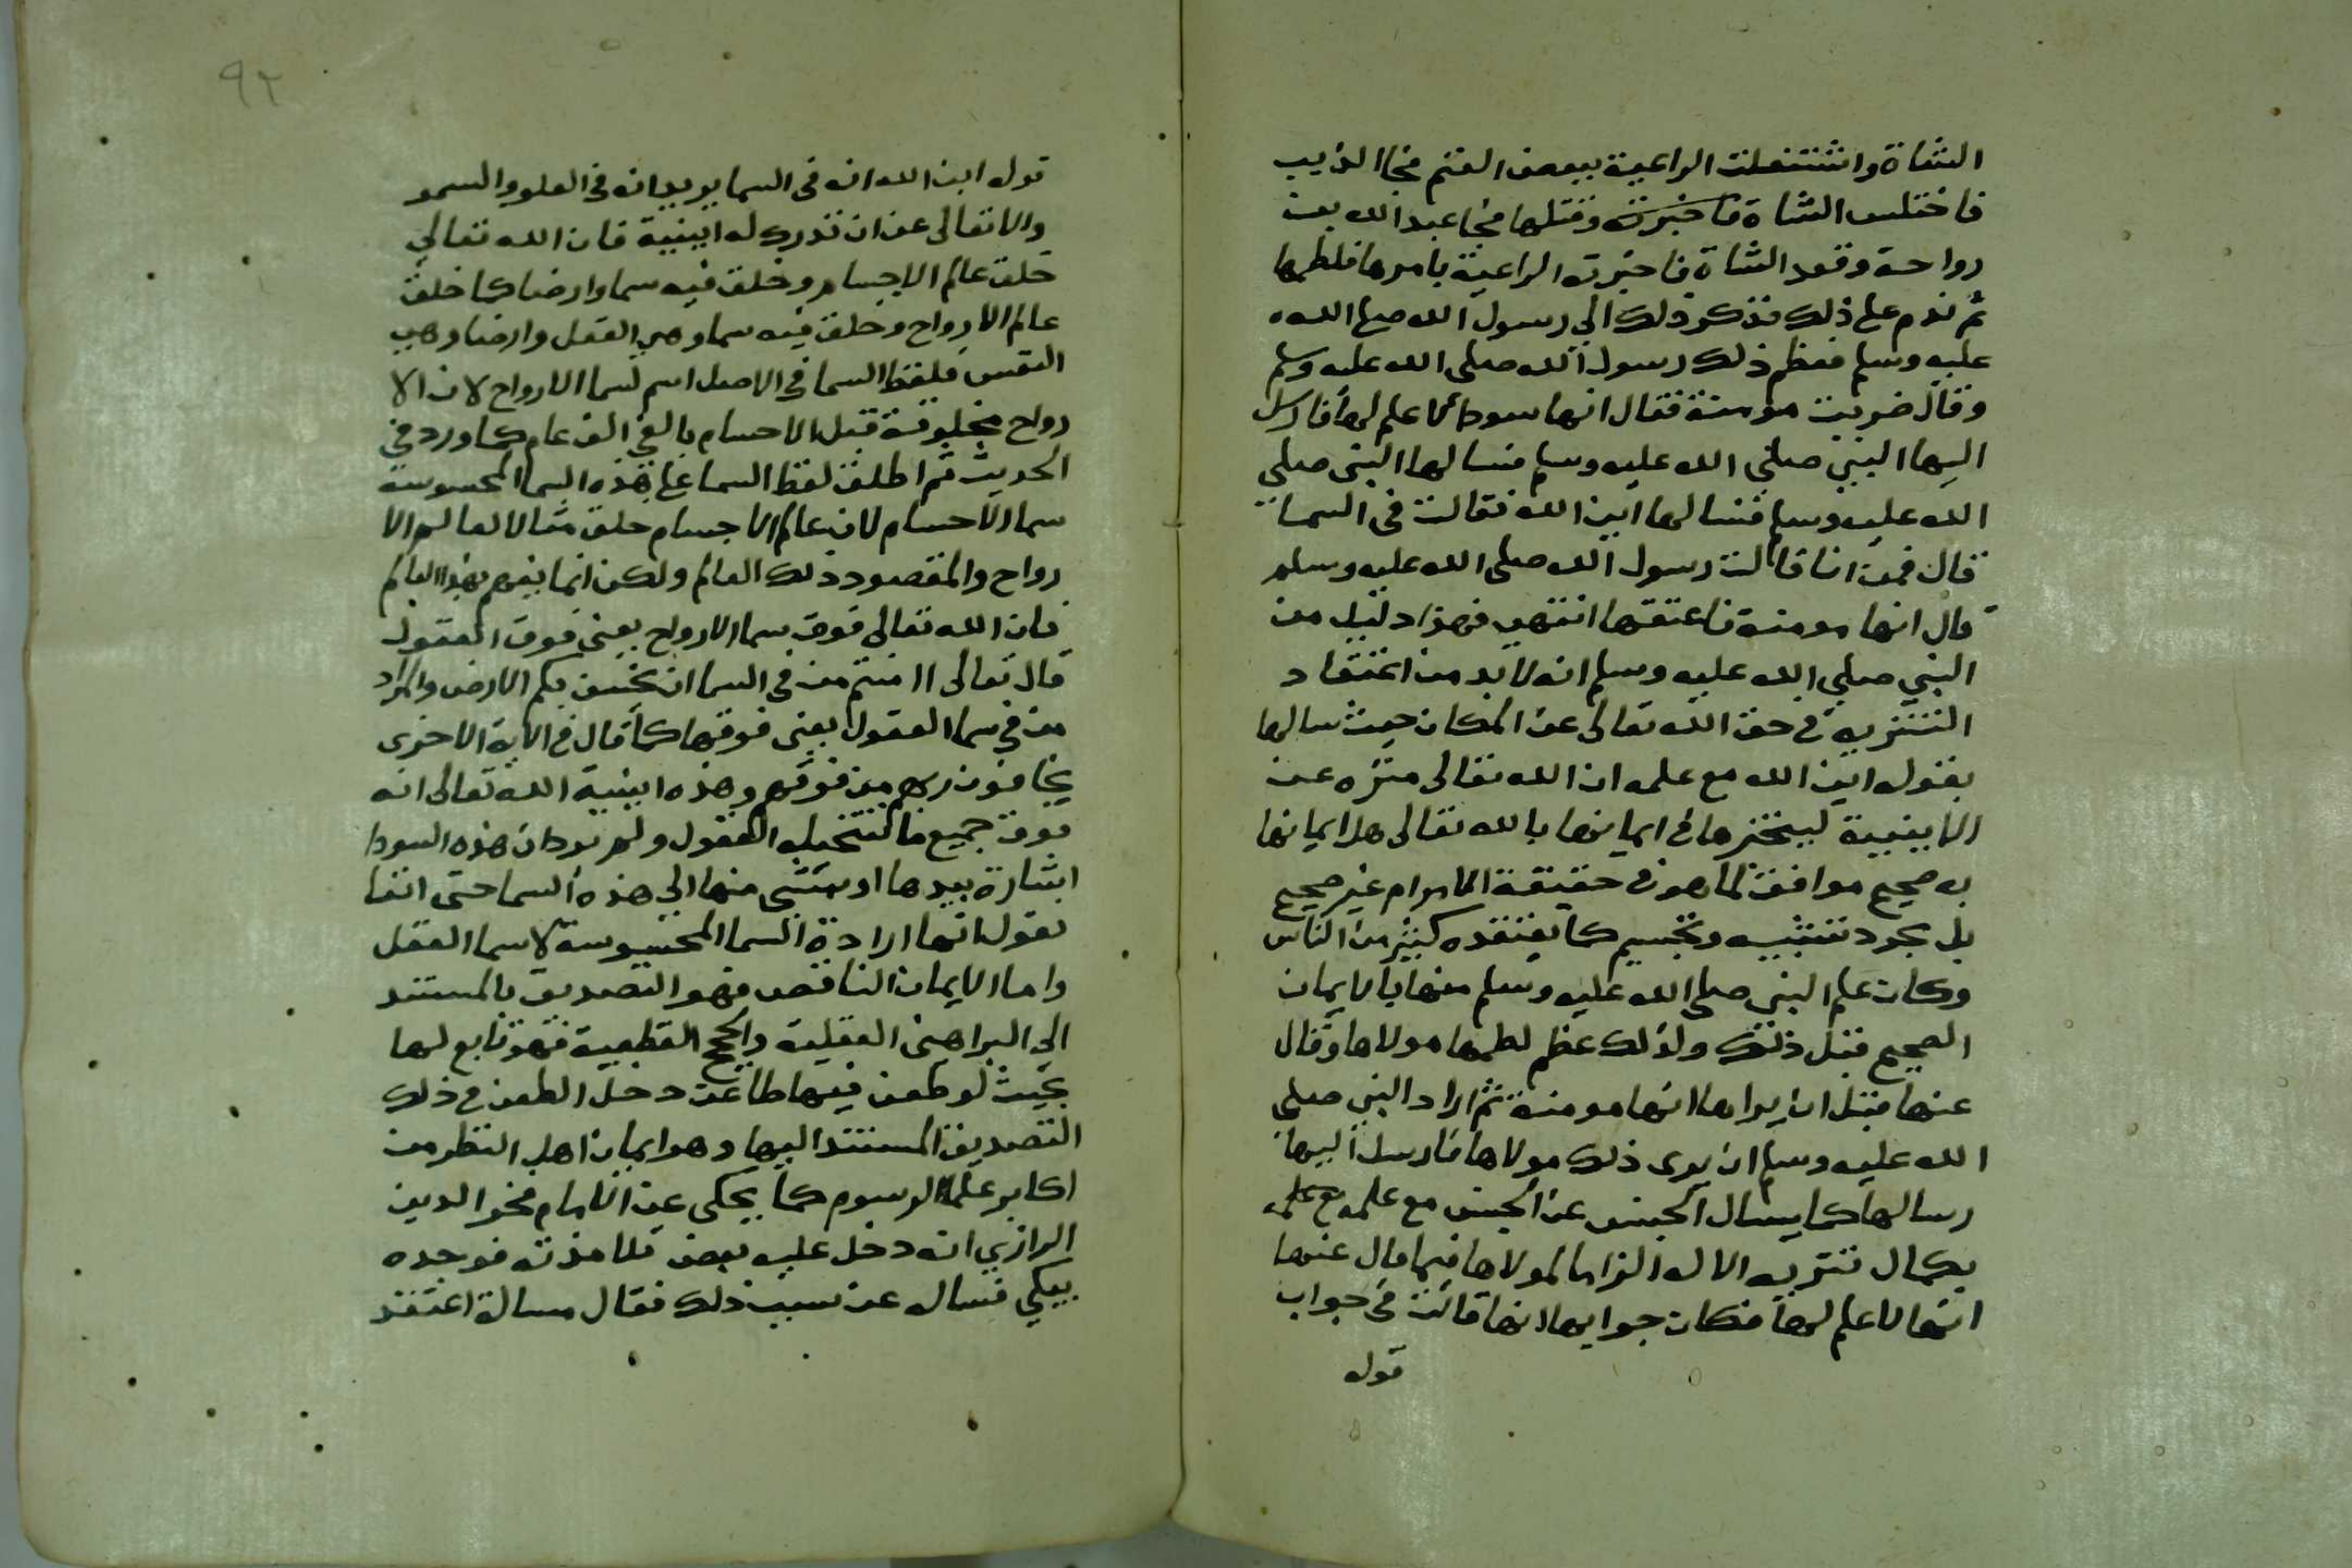 الشاة واشتغلت الراعية ببعض الغنم فجا الذيب
فاختلس الشاة وقتلها فجا عبد الله بن
رواحة وفقد الشاة فاخبرته الراعية بامرها فلطمها
ثم ندم على ذلك فذكر ذلك الي رسول الله صلى الله
عليه وسلم فعظم ذلك رسول الله صلى الله عليه وسلم
وقال ضربت مومنة فقال انها سودا لا علم لها فارسل
اليها النبي صلى الله عليه وسلم فسالها النبي صلى
الله عليه وسلم فسالها اين الله فقالت في السما
قال فمن انا قالت رسول الله صلى الله عليه وسلم
قال انها مومنة فاعتقها انتهي فهذا دليل من
النبي صلي الله عليه وسلم انه لا بد من اعتقاد
التنزيه في حق الله تعالى عن المكان حيث سالها
بقوله اين الله مع علمه ان الله تعالى منزه عن
الاينية ليختبرها في ايمانها بالله تعالى هل ايمانها
به صحيح موافق لما هو في حقيقة الامر ام غير صحيح
بل مجرد تشبيه وتجسيم كما يعتقده كثير من الناس
وكان علم النبي صلى الله عليه وسلم منها بالايمان
الصحيح قبل ذلك ولذلك عظم لطمها مولاها وقال
عنها قبل ان يراها انها مومنة ثم اراد النبي صلى
الله عليه وسلم ان يرى ذلك مولاها فارسل اليها
وسالها كما يسال الجنس عن الجنس مع علمه مع علمه
بكمال تنزيه الاله الزاما لمولاها فيما قال عنها
انها لا علم لها فكان جوابها انها قالت في جواب
قوله
٩٢
قوله اين الله انه في السما يريد انه في العلو والسمو
والا تعالى عن ان تدرك له اينية فان الله تعالى
خلق عالم الاجسام وخلق فيه سما وارضا كما خلق
عالم الارواح وخلق فيه سما وهي العقل وارضا وهي
النفس فلفظ السما في الاصل اسم لسما الارواح لان الا
رواح مخلوقة قبل الاجسام بالفي الف عام كما ورد في
الحديث ثم اطلق لفظ السما على هذه السما المحسوسة
سما الاجسام لان عالم الاجسام خلق مثالا لعالم الا
رواح والمقصود ذلك العالم ولكن انما يفهم بهذا العالم
فان الله تعالى فوق سما الارواح يعني فوق العقول
قال تعالى اامنتم من في السما ان يخسف بكم الارض والمراد
من في سما العقول يعني فوقها كما قال في الاية الاخرى
يخافون ربهم من فوقهم وهذه اينية الله تعالى انه
فوق جميع ما تتخيله العقول ولم يرد ان هذه السودا
اشارة بيدها او بشي منها الى هذه السما حتى انا
نقول انها ارادة السما المحسوسة لا سما العقل
واما الايمان الناقص فهو التصديق بالمستند
الى البراهين العقلية والحجج القطعية فهو تابع لها
بحيث لو طعن فيها طاعن دخل الطعن في ذلك
التصديق المستند اليها وهو ايمان اهل النظر من
اكابر علما الرسوم كما يحكى عن الامام فخر الدين
الرازي انه دخل عليه بعض تلامذته فوجده
يبكي فساله عن سبب ذلك فقال مسالة اعتقد